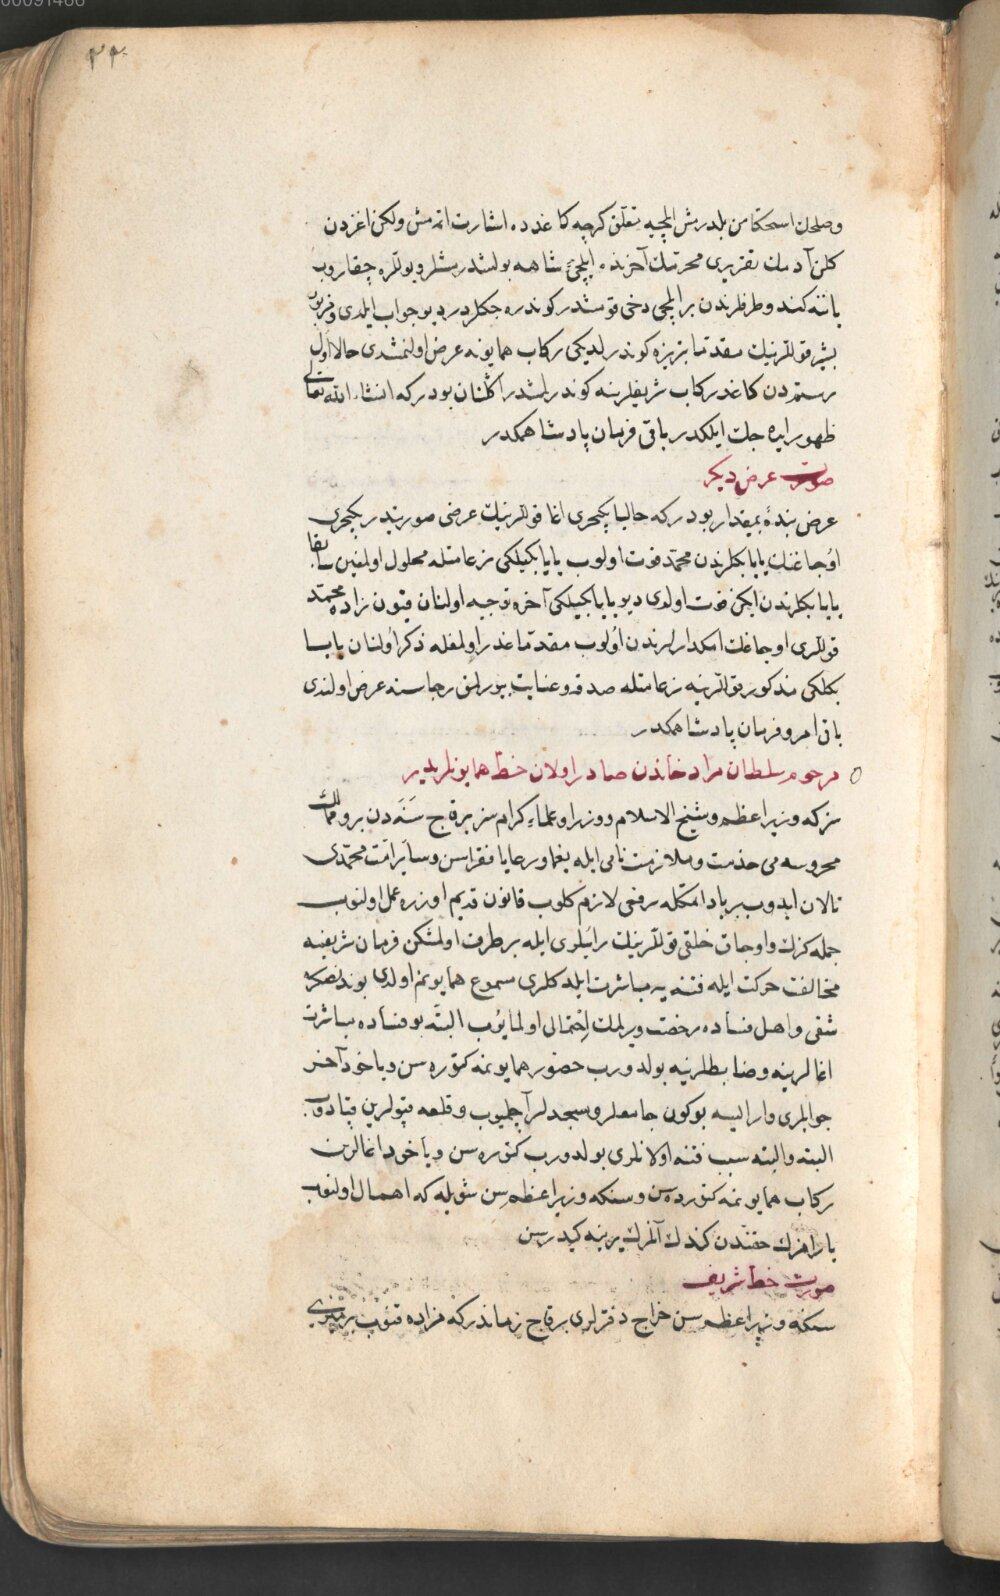 00091466
٢٣٠
وصلحك استحكامن بلدرمش ایلچیه متعلق كرچه كاغدده اشارت اتمش ولكن اغزدن
كلن آدمك تقریری محرمك آخرنده ایلچئ شاهه بولشدرمشلر وبوللره چقاروب
یاننه كند وطرفلرندن بر ایلچی دخی قوشدر كوندره جكلردر دیو جواب ایلدی
بشیر قوللرینك مقدما تبریزه كوندرلدیكی ركاب همایونه عرض اولنمشدی حالا اول
رستمدن كاغد ركاب شریفلرینه كوندرلمشدر اكلنان بودركه انشاء الله تعالی
ظهور ایده جك ایلكدر باقی فرمان پادشاهمكدر
صورت عرض دیكر
عرض بندهٔ بیمقدار بودركه حالیا یكیچری اغا قوللرینك عرضی موجبنجه یكیچری
اوجاغنك یایا بكلرندن محمد فوت اولوب یایا بكیلكی زعامتله محلول اولمغین سابقا
یایا بكلرندن ایكن فوت اولدی دیو یایا بكیلكی آخره توجیه اولنان زاده محمد
قوللری اوجاغك امكدارلرندن اولوب مقدما عذر اولمغله ذكر اولنان یایا
بكلكی مذكور قوللرینه زعامتله صدقه وعنایت بیورلمق رجاسنه عرض اولندی
باقی امر وفرمان پادشاهمكدر
مرحوم سلطان مراد خاندن صادر اولان خط همایونلریدر
سزكه وزیر اعظم وشیخ الاسلام ووزرا وعلماء كرام سز برقاچ سنه دن برو ممالك
محروسه می خدمت وملازمت نامی ایله یغما ورعایا فقراسن وسائر امت محمدی
تالان ایدوب برباد اتمكله رفعی لازم كلوب قانون قدیم اوزره عمل اولنوب
جمله كزك واوجاق خلقی قوللرینك رایلری ایله برطرف اولمشكن فرمان شریفمه
مخالفت حركت ایله فتنه یه مباشرت ایلدكلری مسموع همایونم اولدی بوندنصكره
شقی واهل فساده رخصت ویرلمك احتمالی اولمایوب البته بو فساده مباشرت
اغالرینه وضابطلرینه بولدورب حضور همایونمه كتوره سن ویاخود آخر
جوابلری وار ایسه بوكون جامعلر ومسجدلر آچلمیوب وقلعه قپولرین قپادوب
البته والبته سبب فتنه اولانلری بولدورب كتوره سن ویاخود اغالرن
ركاب همایونمه كتورده سن وسنكه وزیر اعظم سن شویله كه اهمال اولنوب
یارامزك حقندن كندك آنلرك یرینه كیدرسن
صورت خط شریف
سنكه وزیر اعظم سن خراج دفترلری برقاچ زماندركه مزاده قنوب